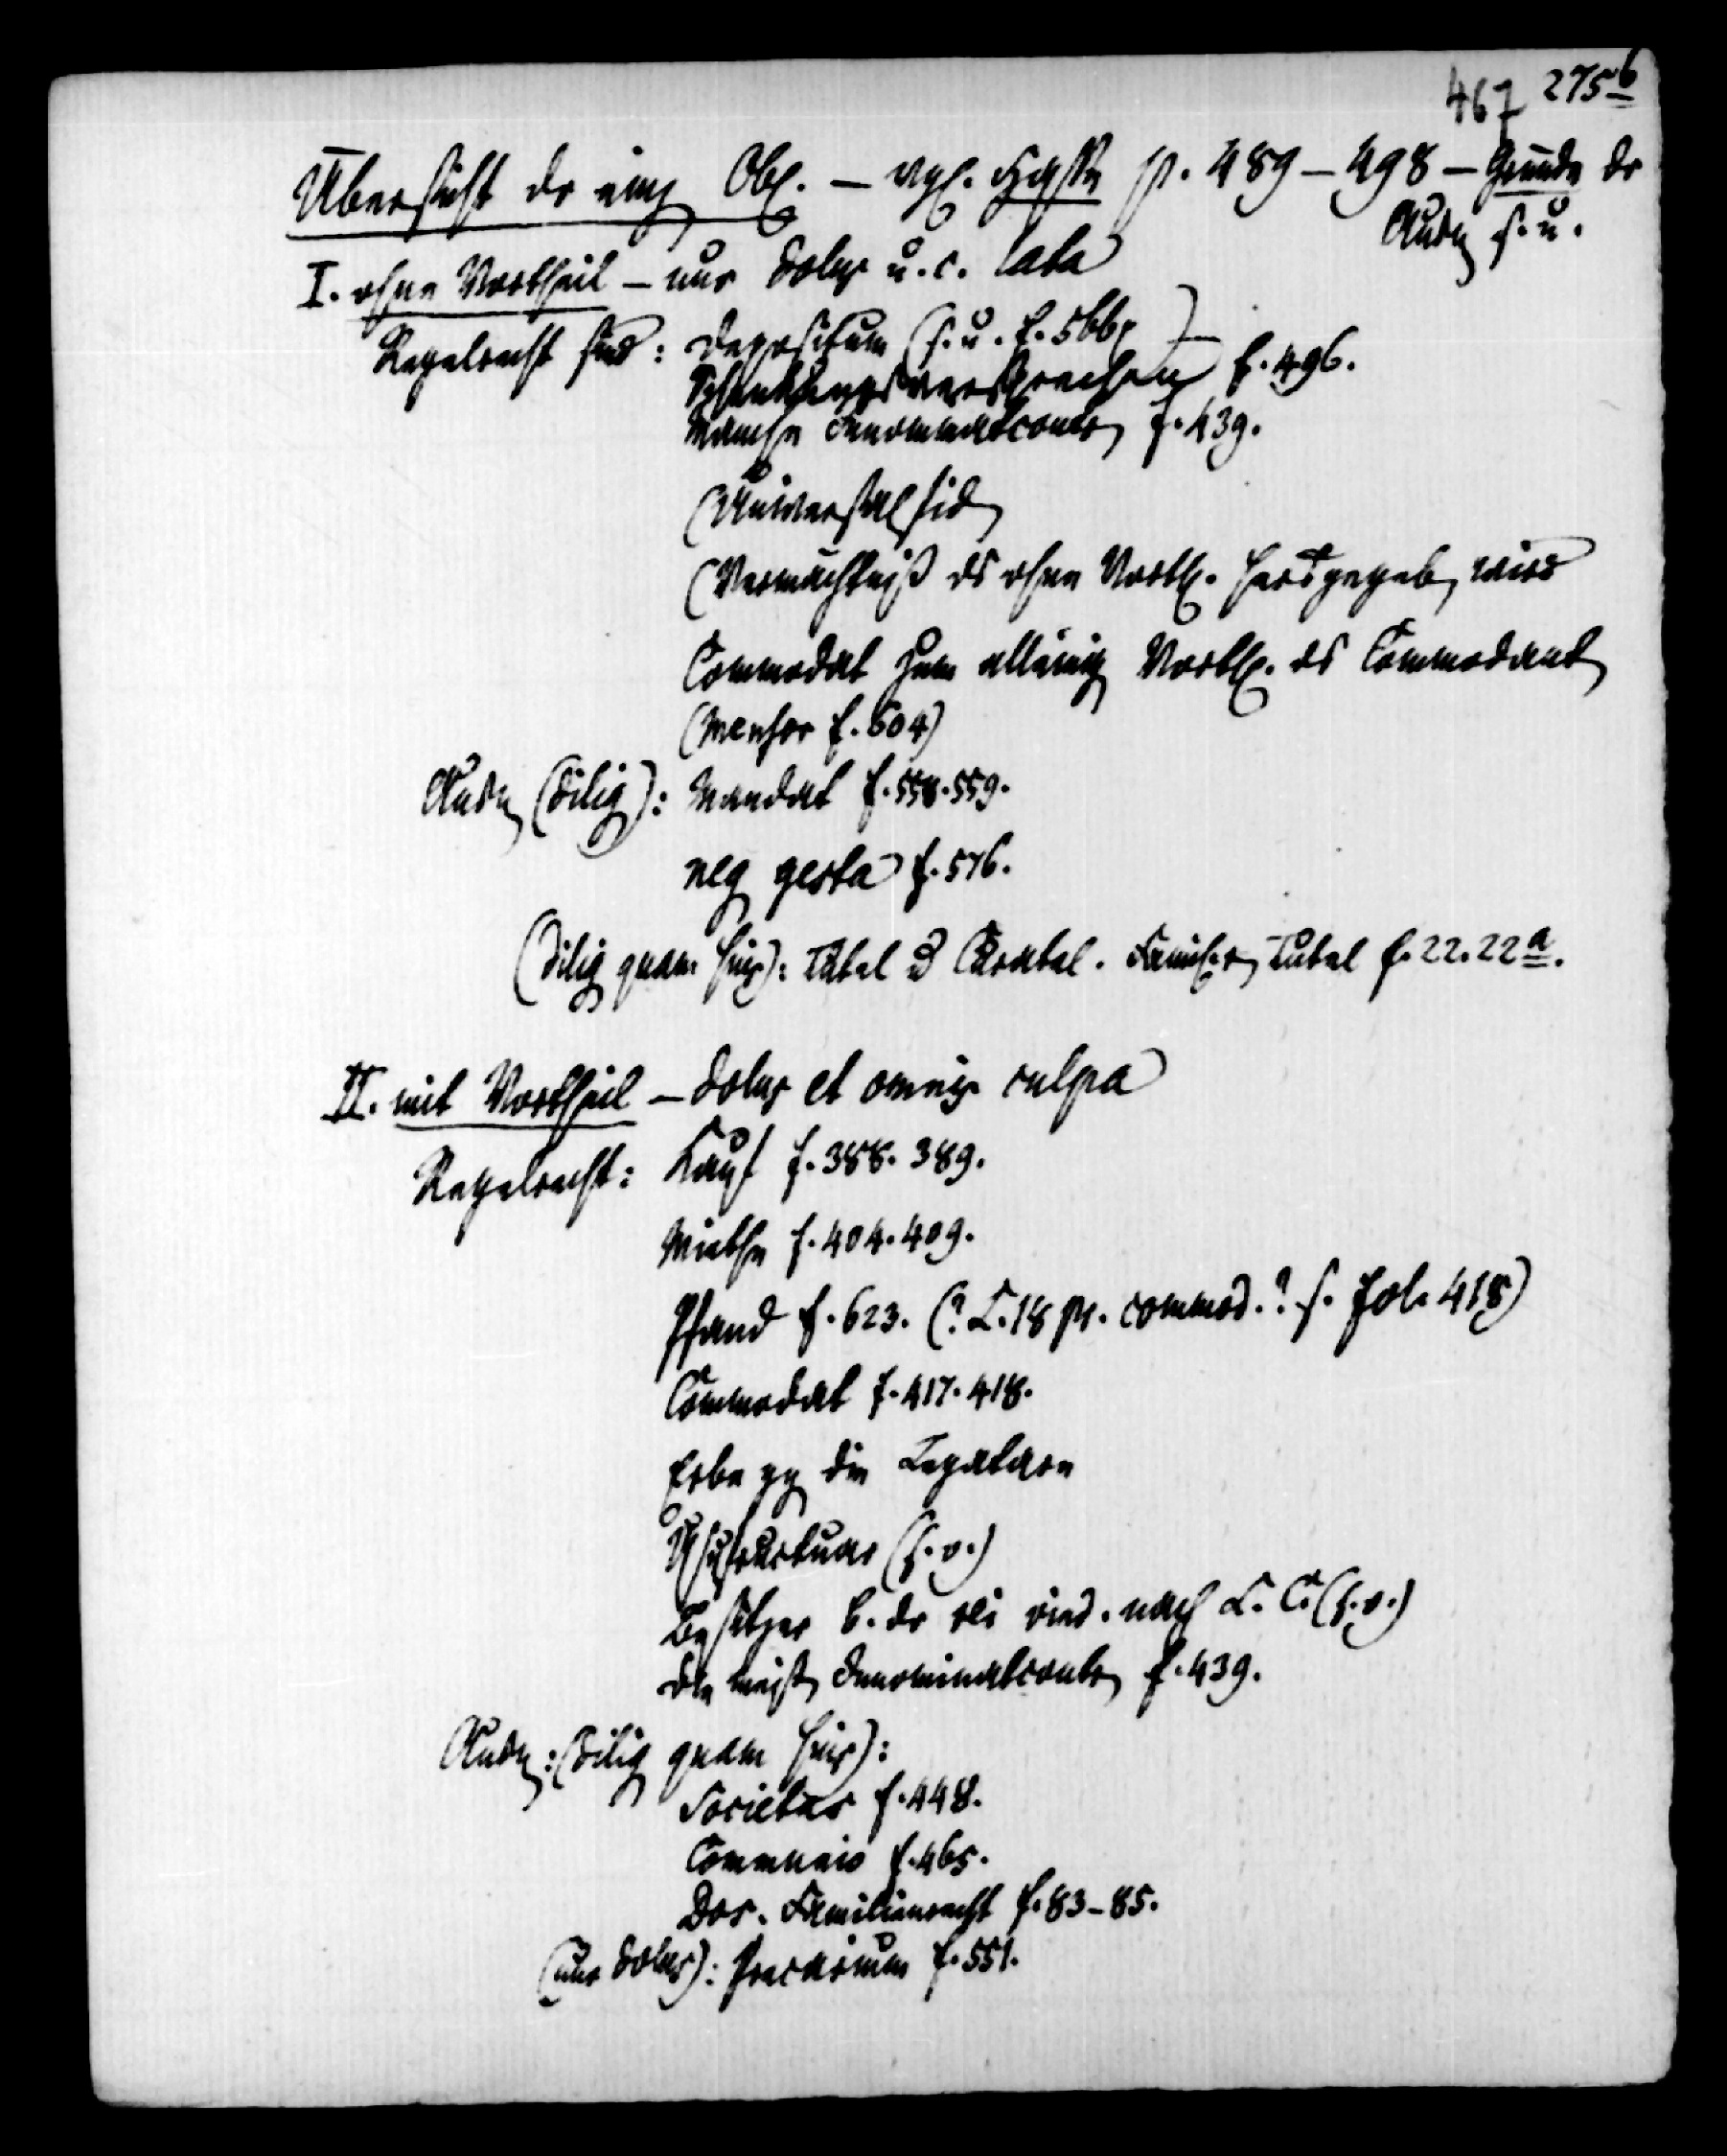 467 275b
Übersicht der einz Obl. – vgl. Hasse p. 489–498 – Gründe der
Ausn s. u.
I. ohne Vortheil – nur Dolus u. c. lata
Regelrecht sind: Depositum (s. u. f. 566)
Schenkungsversprechen f. 496.
Manche Innominatcontr f. 439.
(Universalfid
(Vermächtniß das ohne Vorth. herausgegeb wird
Commodat zum alleinig Vorth. des Commodant
(Mensor f. 604)
Ausn (Dilig): Mandat f. 558. 559.
neg gesta f. 576.
(Dilig quam suis): Tutel u Curatel. Tutel f. 22. 22a.
II. mit Vortheil – Dolus et omnis culpa
Regelrecht: Kauf f. 388. 389.
Miethe f. 404. 409.
Pfand f. 623. (? L. 18 pr. commod. ? s. fol. 418)
Commodat f. 417. 418.
Erbe gg die Legatare
Usufructuar (s. o.)
Besitzer b. der rei vind. nach L. C. (s. o.)
die meist Innominatcontr f. 439.
Ausn: (Dilig quam suis):
Societas f. 448.
Communio f. 465.
Dos. Familienrecht f. 83–85.
(nur Dolus): Precarium f. 551.